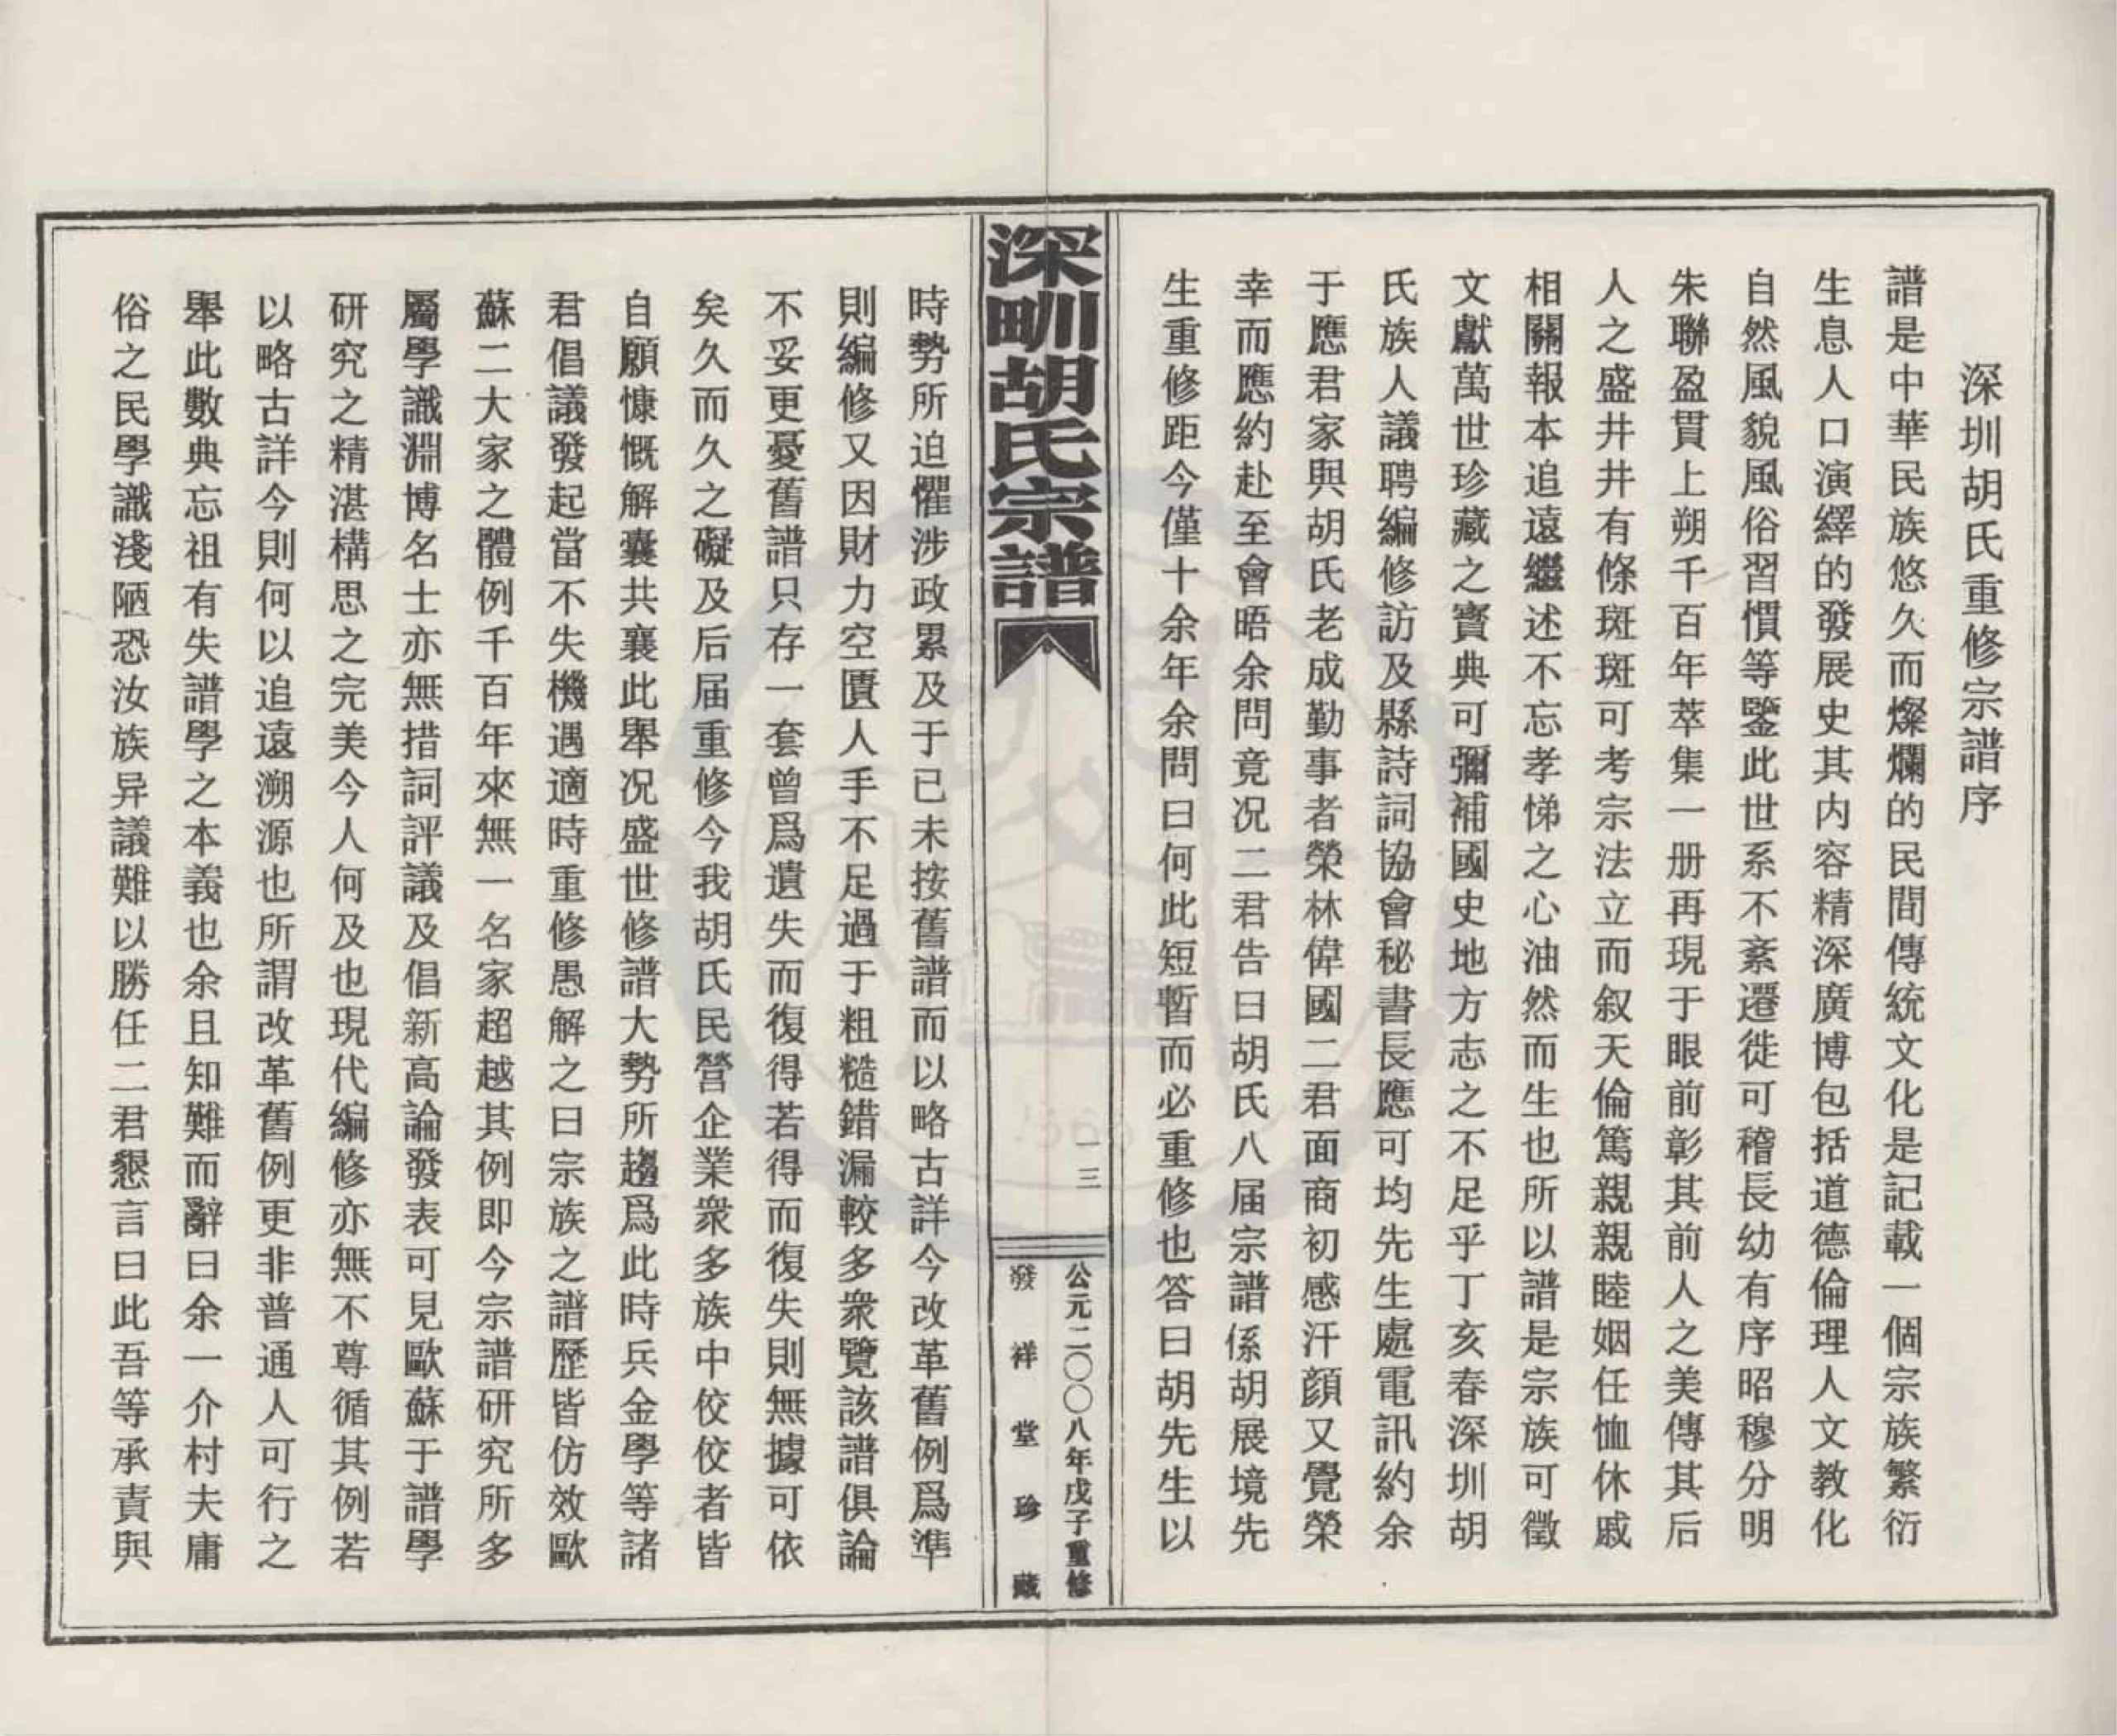 深圳胡氏重修宗譜序
譜是中華民族悠久而燦爛的民間傳統文化是記載一個宗族繁衍
生息人口演繹的發展史其内容精深廣博包括道德倫理人文教化
自然風貌風俗習慣等鑒此世系不紊遷徙可稽長幼有序昭穆分明
朱聯盈貫上朔千百年萃集一册再現于眼前彰其前人之美傳其后
人之盛井井有條斑斑可考宗法立而叙天倫篤親親睦姻任恤休戚
相關報本追遠繼述不忘孝悌之心油然而生也所以譜是宗族可徵
文獻萬世珍藏之寶典可彌補國史地方志之不足乎丁亥春深圳胡
氏族人議聘編修訪及縣詩詞協會秘書長應可均先生處電訊約余
于應君家與胡氏老成勤事者榮林偉國二君面商初感汗顔又覺榮
幸而應約赴至會晤余問竟况二君告曰胡氏八届宗譜係胡展境先
生重修距今僅十余年余問曰何此短暫而必重修也答曰胡先生以
深圳胡氏宗譜
一三
公元二〇〇八年戊子重修
發祥堂珍藏
時勢所迫懼涉政累及于已未按舊譜而以略古詳今改革舊例爲準
則編修又因財力空匱人手不足過于粗糙錯漏較多衆覽該譜俱論
不妥更憂舊譜只存一套曾爲遺失而復得若得而復失則無據可依
矣久而久之礙及后届重修今我胡氏民營企業衆多族中佼佼者皆
自願慷慨解囊共襄此舉况盛世修譜大勢所趨爲此時兵金學等諸
君倡議發起當不失機遇適時重修愚解之曰宗族之譜歷皆仿效歐
蘇二大家之體例千百年來無一名家超越其例即今宗譜研究所多
屬學識淵博名士亦無措詞評議及倡新高論發表可見歐蘇于譜學
研究之精湛構思之完美今人何及也現代編修亦無不尊循其例若
以略古詳今則何以追遠溯源也所謂改革舊例更非普通人可行之
舉此數典忘祖有失譜學之本義也余且知難而辭曰余一介村夫庸
俗之民學識淺陋恐汝族异議難以勝任二君懇言曰此吾等承責與